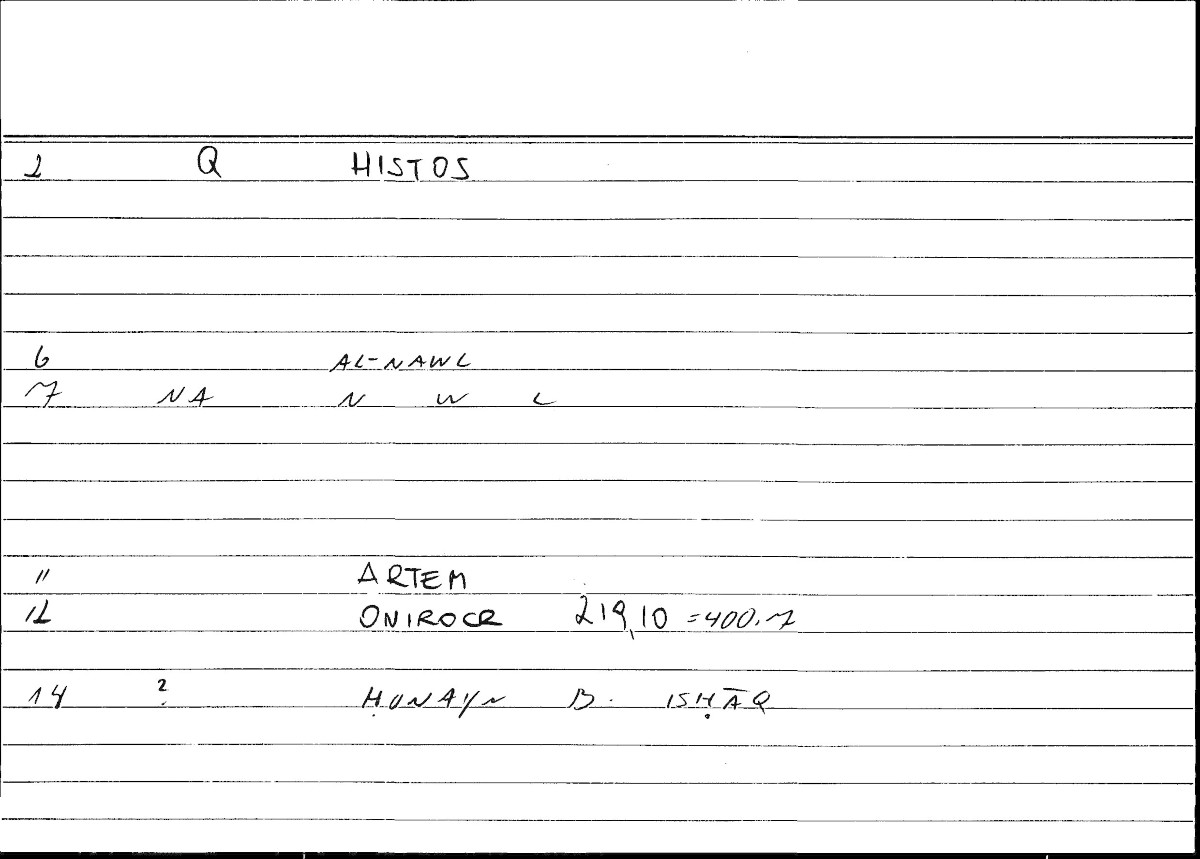 2 Q HISTOS
6 AL-NAWL
7 NA N W L
11 ARTEM
12 ONIROCR 219,10 =400.7
14 ? ḤUNAYN B. ISḤĀQ